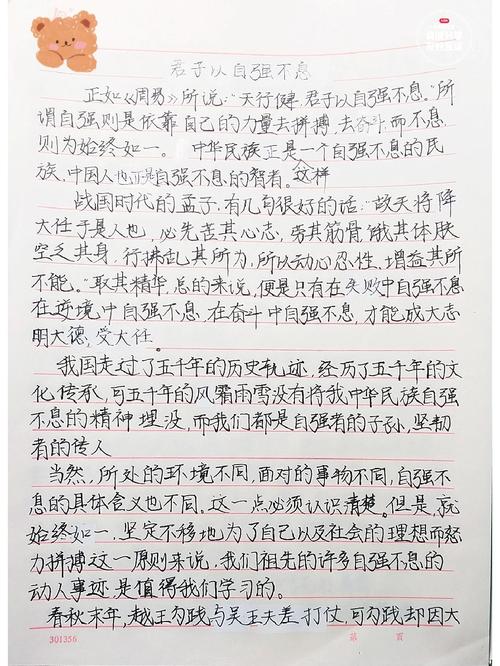 君子以自强不息
正如《周易》所说:“天行健,君子以自强不息。”所
谓自强则是依靠自己的力量去拼搏,去奋斗,而不息,
则为始终如一。 中华民族正是一个自强不息的民
族,中国人也正是自强不息的智者。这样
战国时代的孟子,有几句很好的话:“故天将降
大任于是人也,必先苦其心志,劳其筋骨,饿其体肤,
空乏其身,行拂乱其所为,所以动心忍性,增益其所
不能。”取其精华,总的来说,便是只有在失败中自强不息
在逆境中自强不息,在奋斗中自强不息,才能成大志
明大德,受大任。
我国走过了五千年的历史轨迹,经历了五千年的文
化传承,可五千年的风霜雨雪没有将我中华民族自强
不息的精神埋没,而我们都是自强者的子孙,坚韧
者的传人
当然,所处的环境不同,面对的事物不同,自强不
息的具体含义也不同。这一点必须认识清楚。但是,就
始终如一,坚定不移地为了自己以及社会的理想而努
力拼搏这一原则来说,我们祖先的许多自强不息的
动人事迹,是值得我们学习的。
春秋末年,越王勾践与吴王夫差,打仗,可勾践却因大
301356
第 页